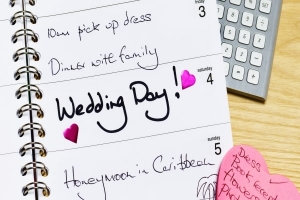 friday
3
10am pick up dress
Dinner with family
saturday
4
Wedding Day!
sunday
5
Honeymoon in Caribbean
Dress
Book
flowers